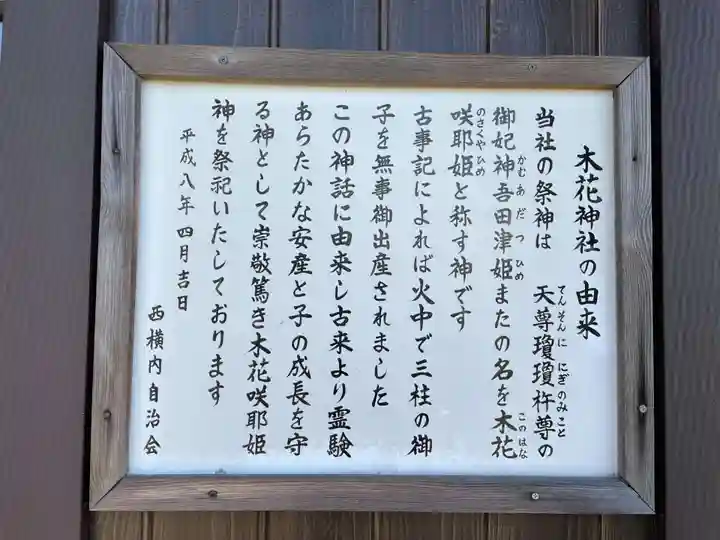 木花神社の由来
当社の祭神は　天尊瓊瓊杵尊の
てんそんに にぎのみこと
御妃神吾田津姫またの名を木花
かむあだつひめ
このはな
咲耶姫と称す神です
のさくやひめ
古事記によれば火中で三柱の御
子を無事御出産されました
この神話に由来し古来より霊験
あらたかな安産と子の成長を守
る神として崇敬篤き木花咲耶姫
神を祭祀いたしております
平成八年四月吉日
西横内自治会